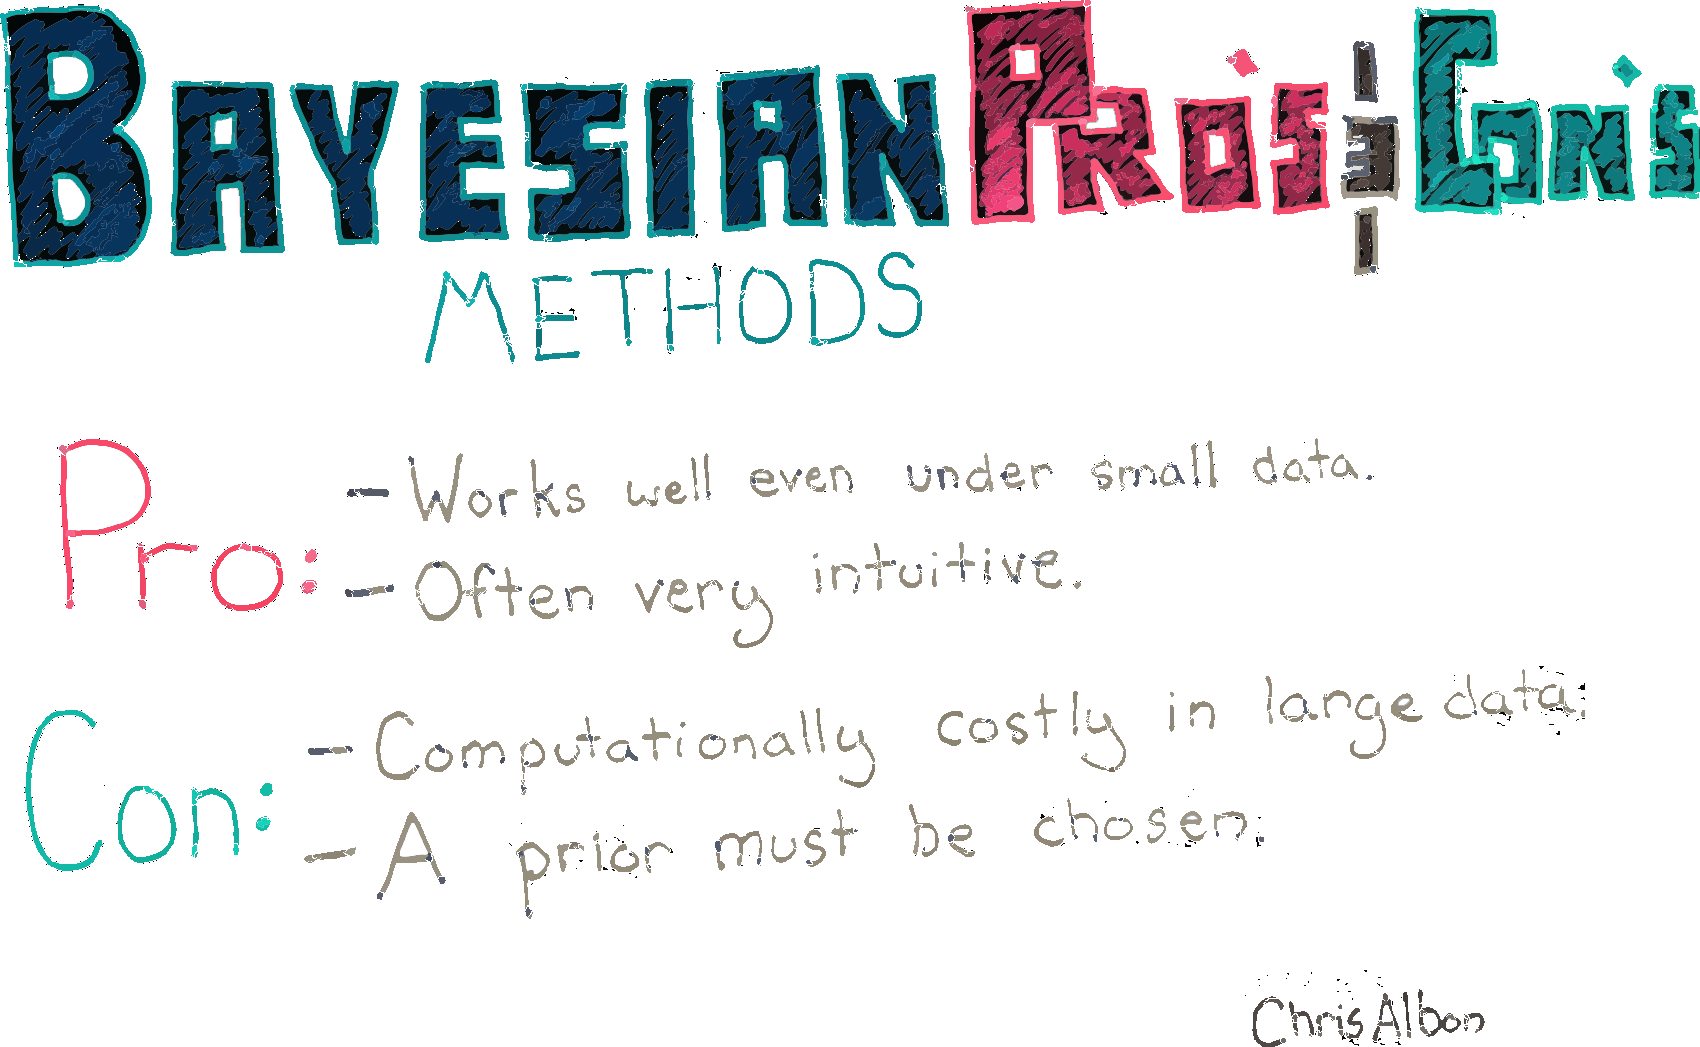 BAYESIAN PRO'S & CON'S
METHODS
Pro:
- Works well even under small data.
- Often very intuitive.
Con:
- Computationally costly in large data.
- A prior must be chosen.
Chris Albon